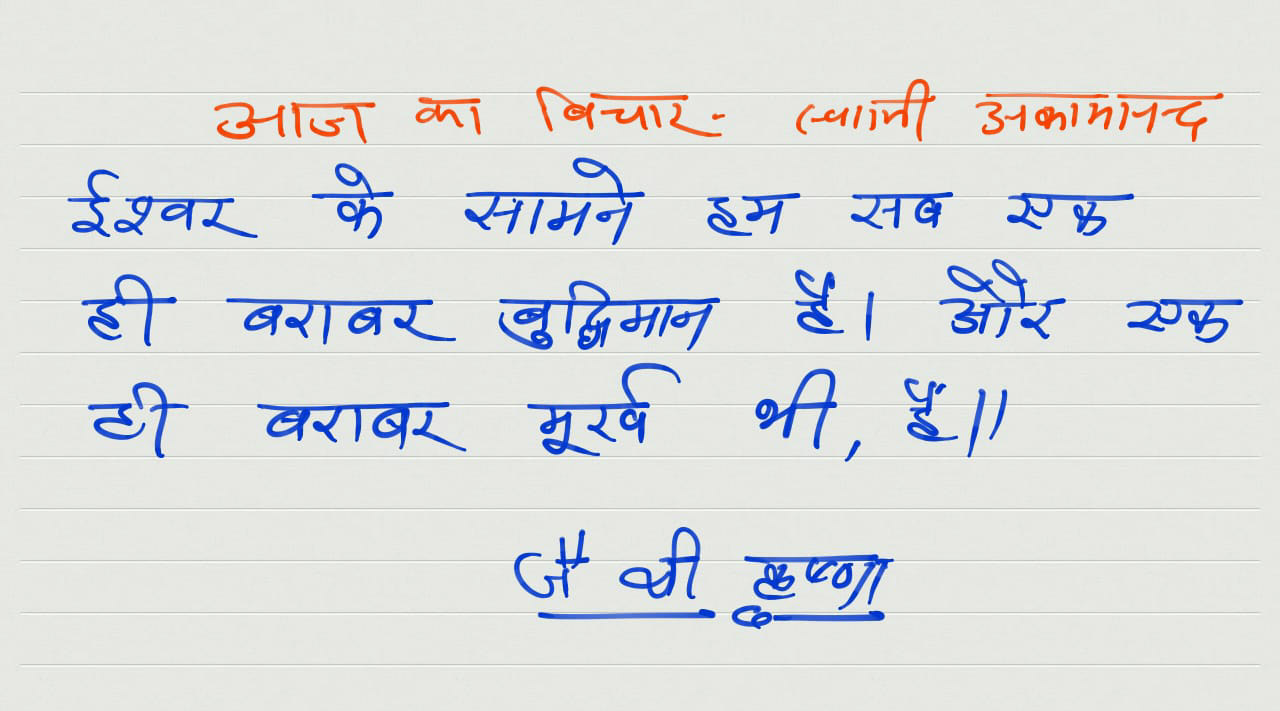 आज का विचार- स्वामी अकामानन्द
ईश्वर के सामने हम सब एक
ही बराबर बुद्धिमान हैं। और एक
ही बराबर मूर्ख भी, हैं॥
जै श्री कृष्णा